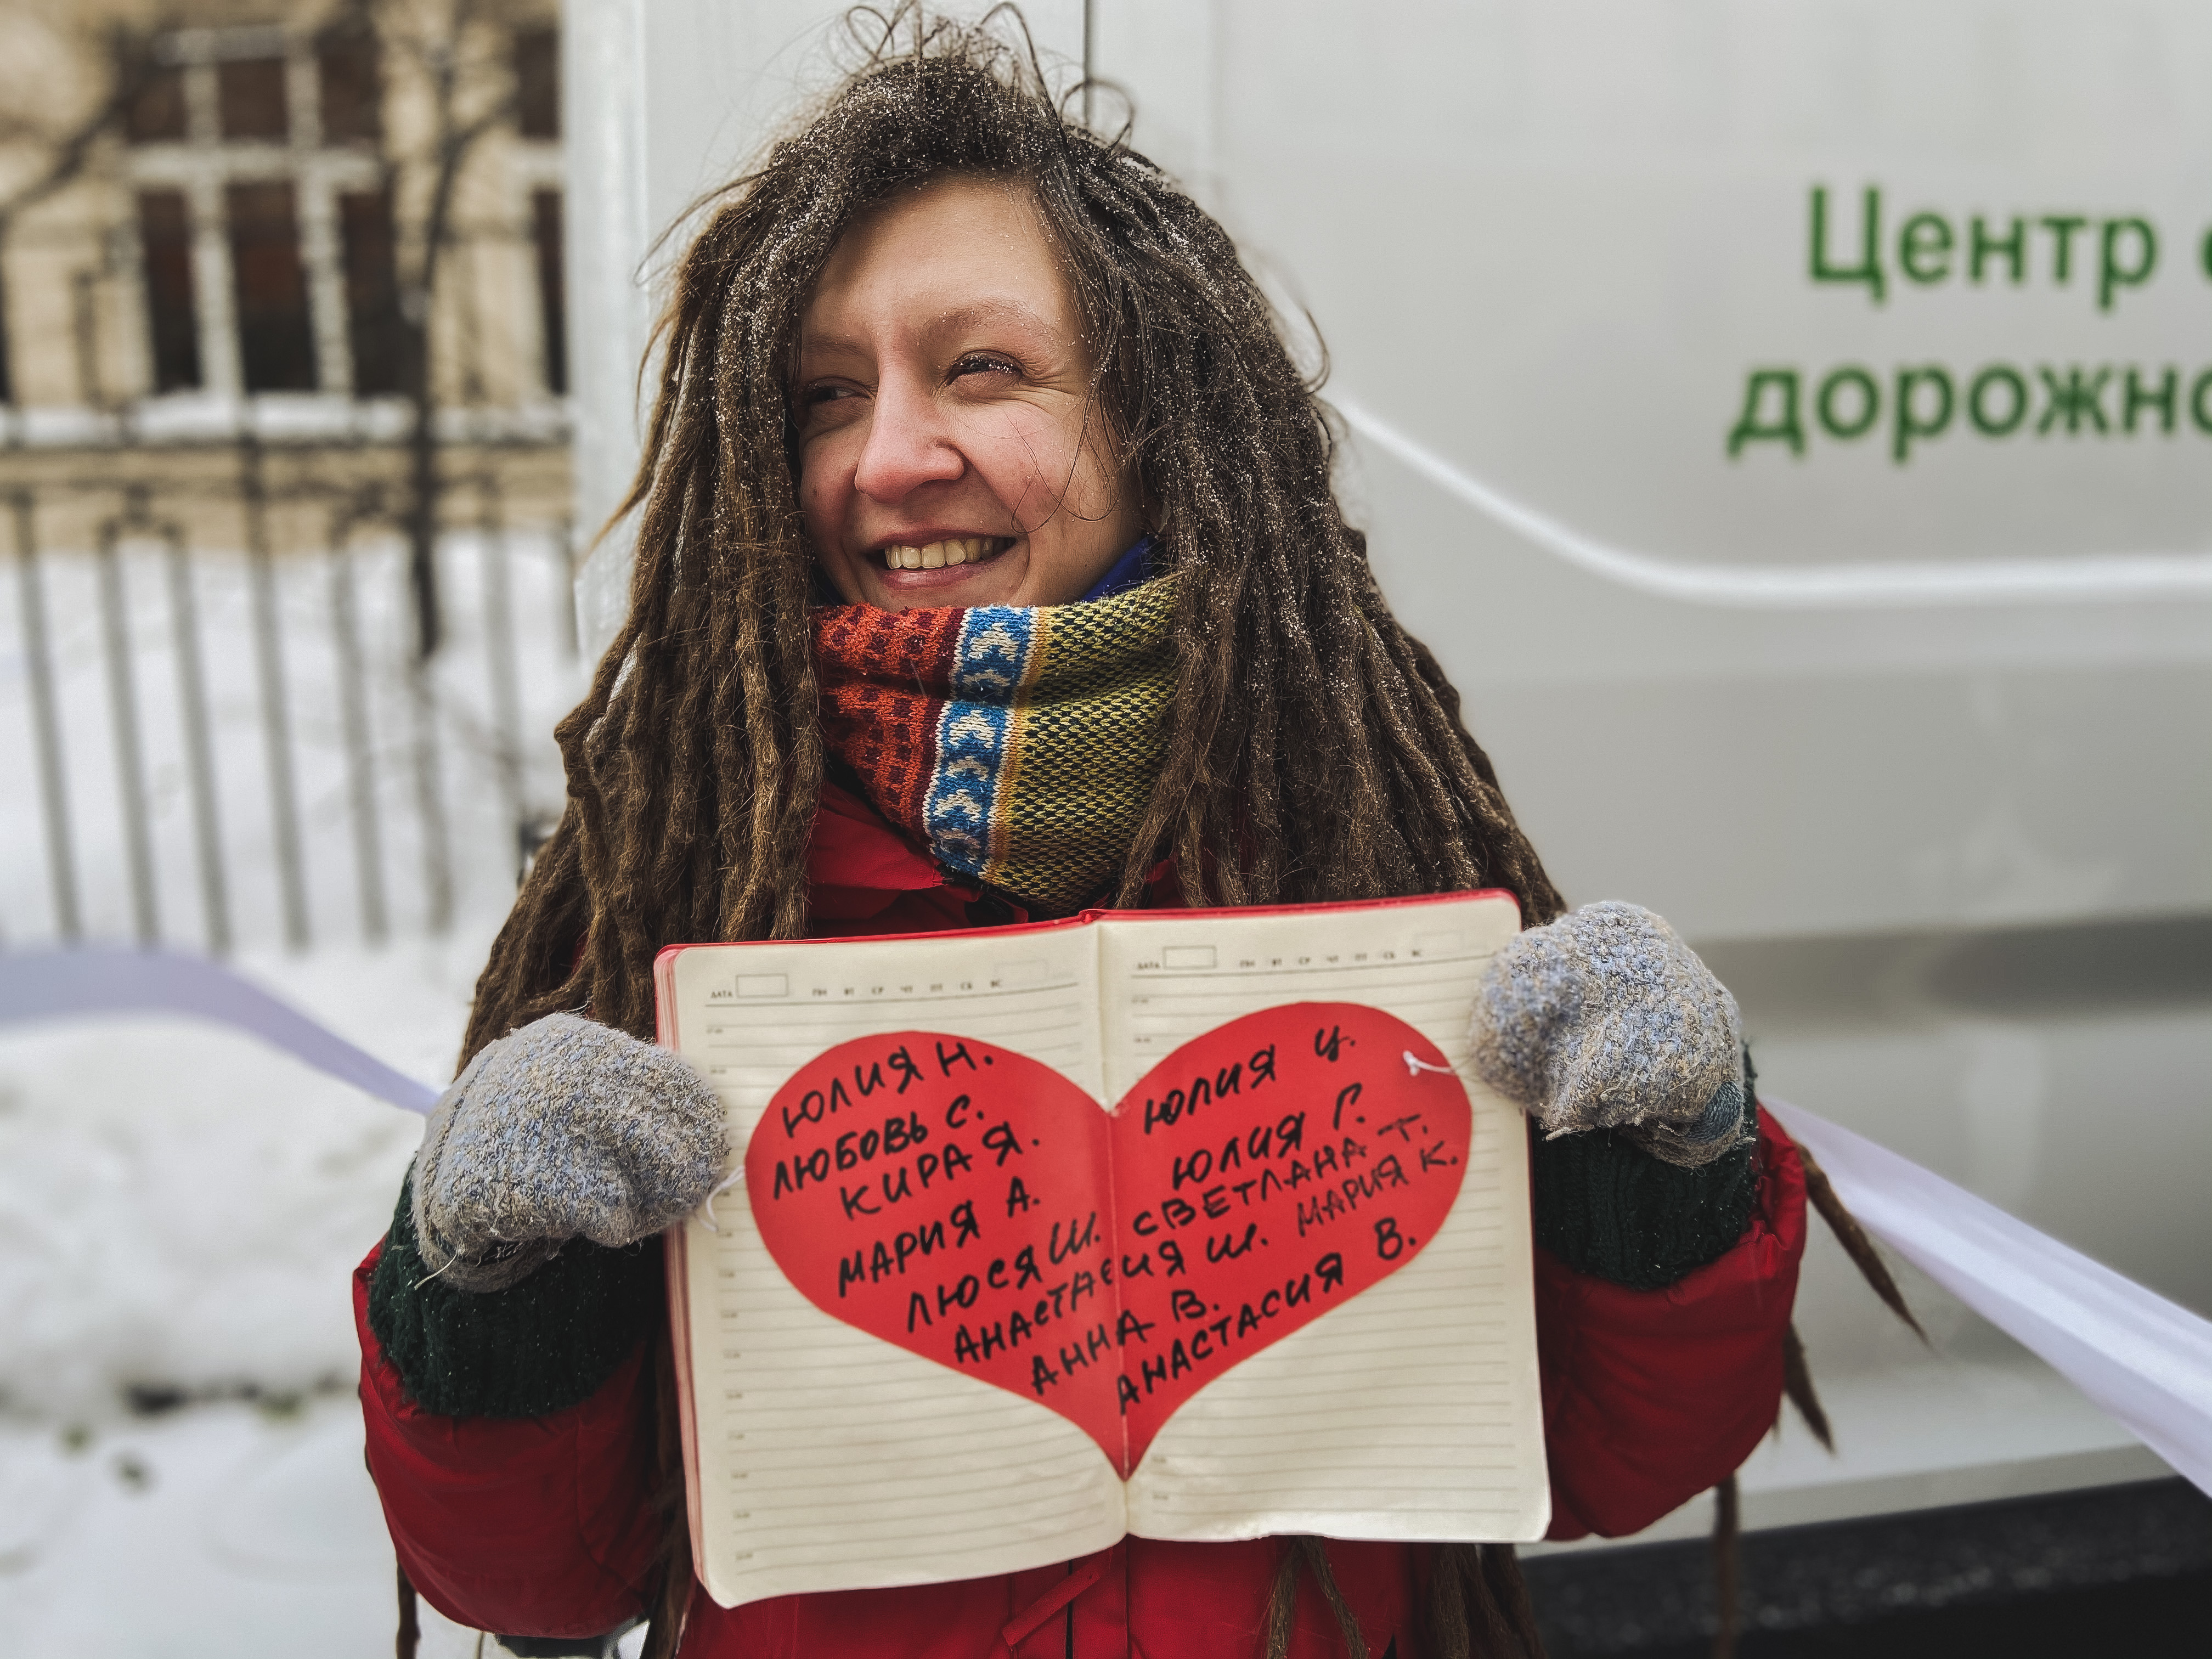 Центр
дорожно
ДАТА ПН ВТ СР ЧТ ПТ СБ ВС
ДАТА ПН ВТ СР ЧТ ПТ СБ ВС
ЮЛИЯ Н.
ЛЮБОВЬ С.
КИРА Я.
МАРИЯ А.
ЛЮСЯ Ш.
ЮЛИЯ Ч.
ЮЛИЯ Г.
СВЕТЛАНА Т.
МАРИЯ К.
АНАСТАСИЯ Ш.
АННА В.
АНАСТАСИЯ В.